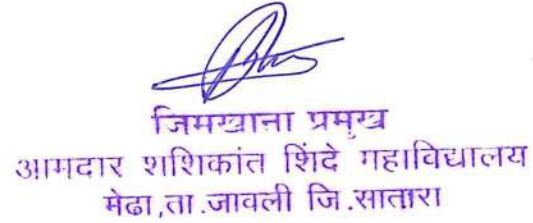 जिमखाना प्रमुख
आमदार शशिकांत शिंदे महाविद्यालय
मेढा,ता.जावली जि.सातारा